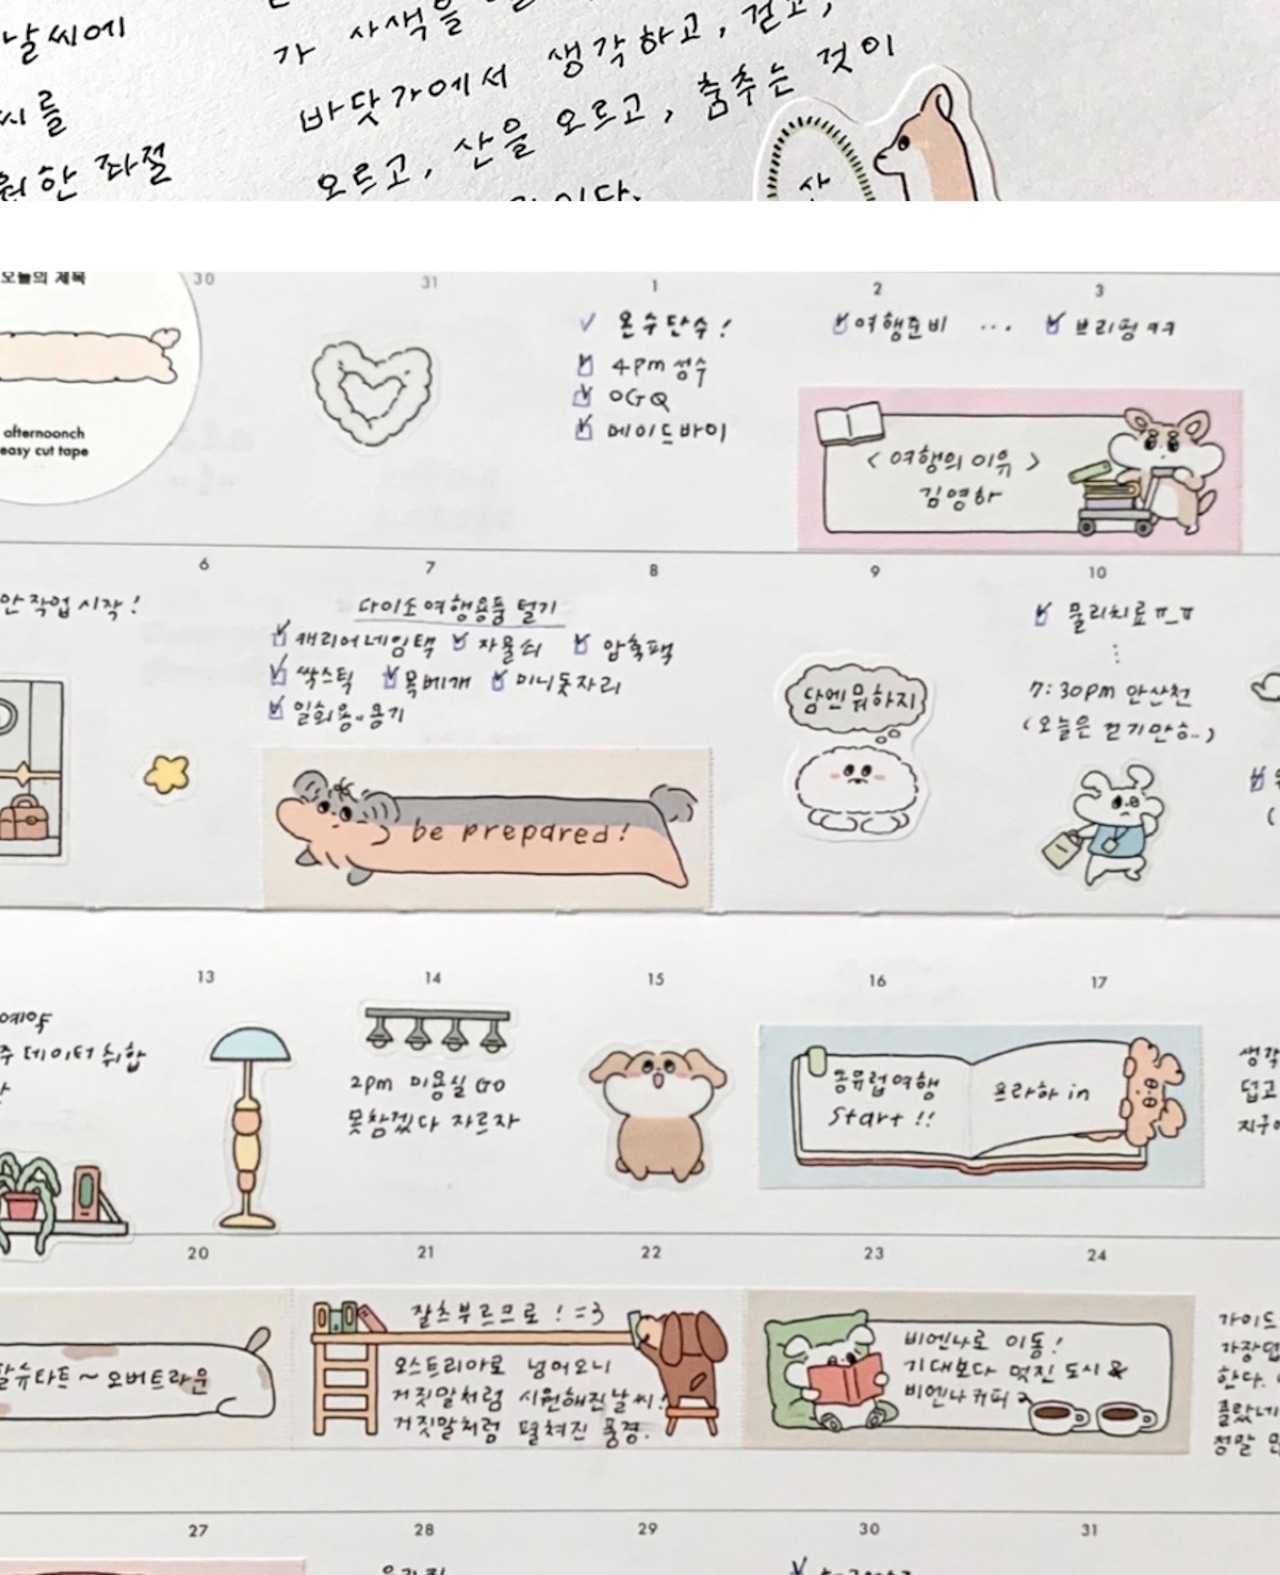 날씨에
씨를
한 좌절
가 사색을
바닷가에서 생각하고, 걷고,
오르고, 산을 오르고, 춤추는 것이
오늘의 제목
afternoonch
easy cut tape
30
31
1
온수단수!
4pm 성수
OGQ
메이드바이
2
여행준비 ...
3
브리핑 ㅋㅋ
<여행의 이유>
김영하
안 작업 시작!
6
7
다이소 여행용품 털기
캐리어네임택 자물쇠 압축팩
싹스틱 목베개 미니돗자리
일회용 용기
be prepared!
8
9
담엔 뭐하지
10
물리치료 ㅠ_ㅠ
7:30pm 안산천
(오늘은 걷기만ㅎ..)
예약
주 데이터 취합
13
14
2pm 미용실 GO
못참겠다 자르자
15
16
17
동유럽여행
Start!!
프라하 in
생각
덥고
20
~ 오버트라운
21
22
잘츠부르크로! =3
오스트리아로 넘어오니
거짓말처럼 시원해진 날씨!
거짓말처럼 펼쳐진 풍경.
23
24
비엔나로 이동!
기대보다 멋진 도시
비엔나 커피
가이드
가장덥
한다.
흘렀네
정말
27
28
29
30
31